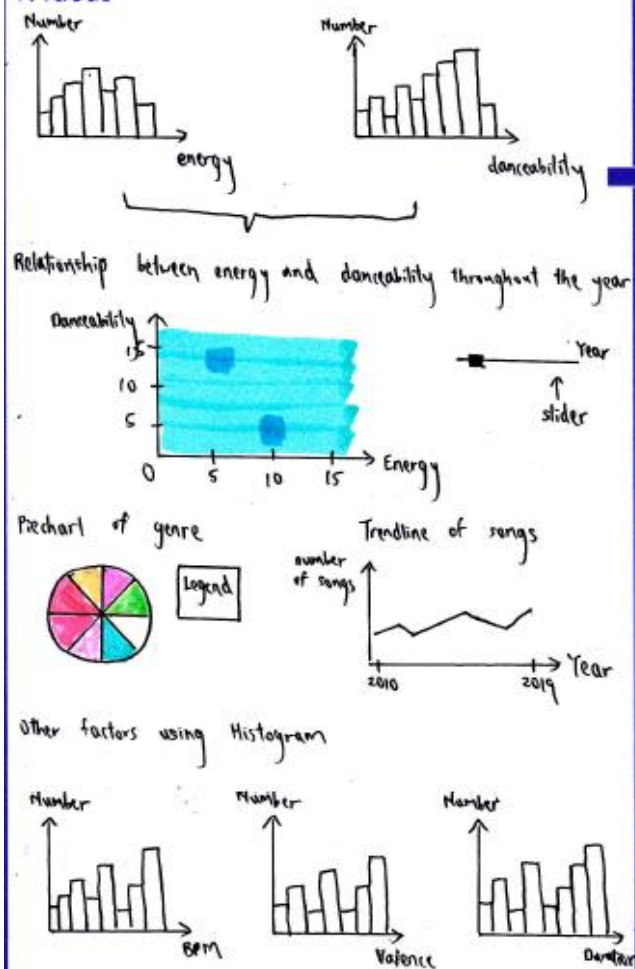 Number
Number
energy
danceability
Relationship between energy and danceability throughout the year
Danceability
15
10
5
0
5
10
15
Energy
Year
slider
Piechart of genre
Legend
Trendline of songs
number
of songs
2010
2019
Year
Other factors using Histogram
Number
Number
Number
BPM
Valence
Duration